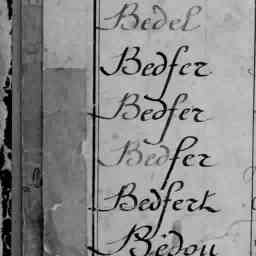 Bedel
Bedfer
Bedfer
Bedfer
Bedfert
Bedou